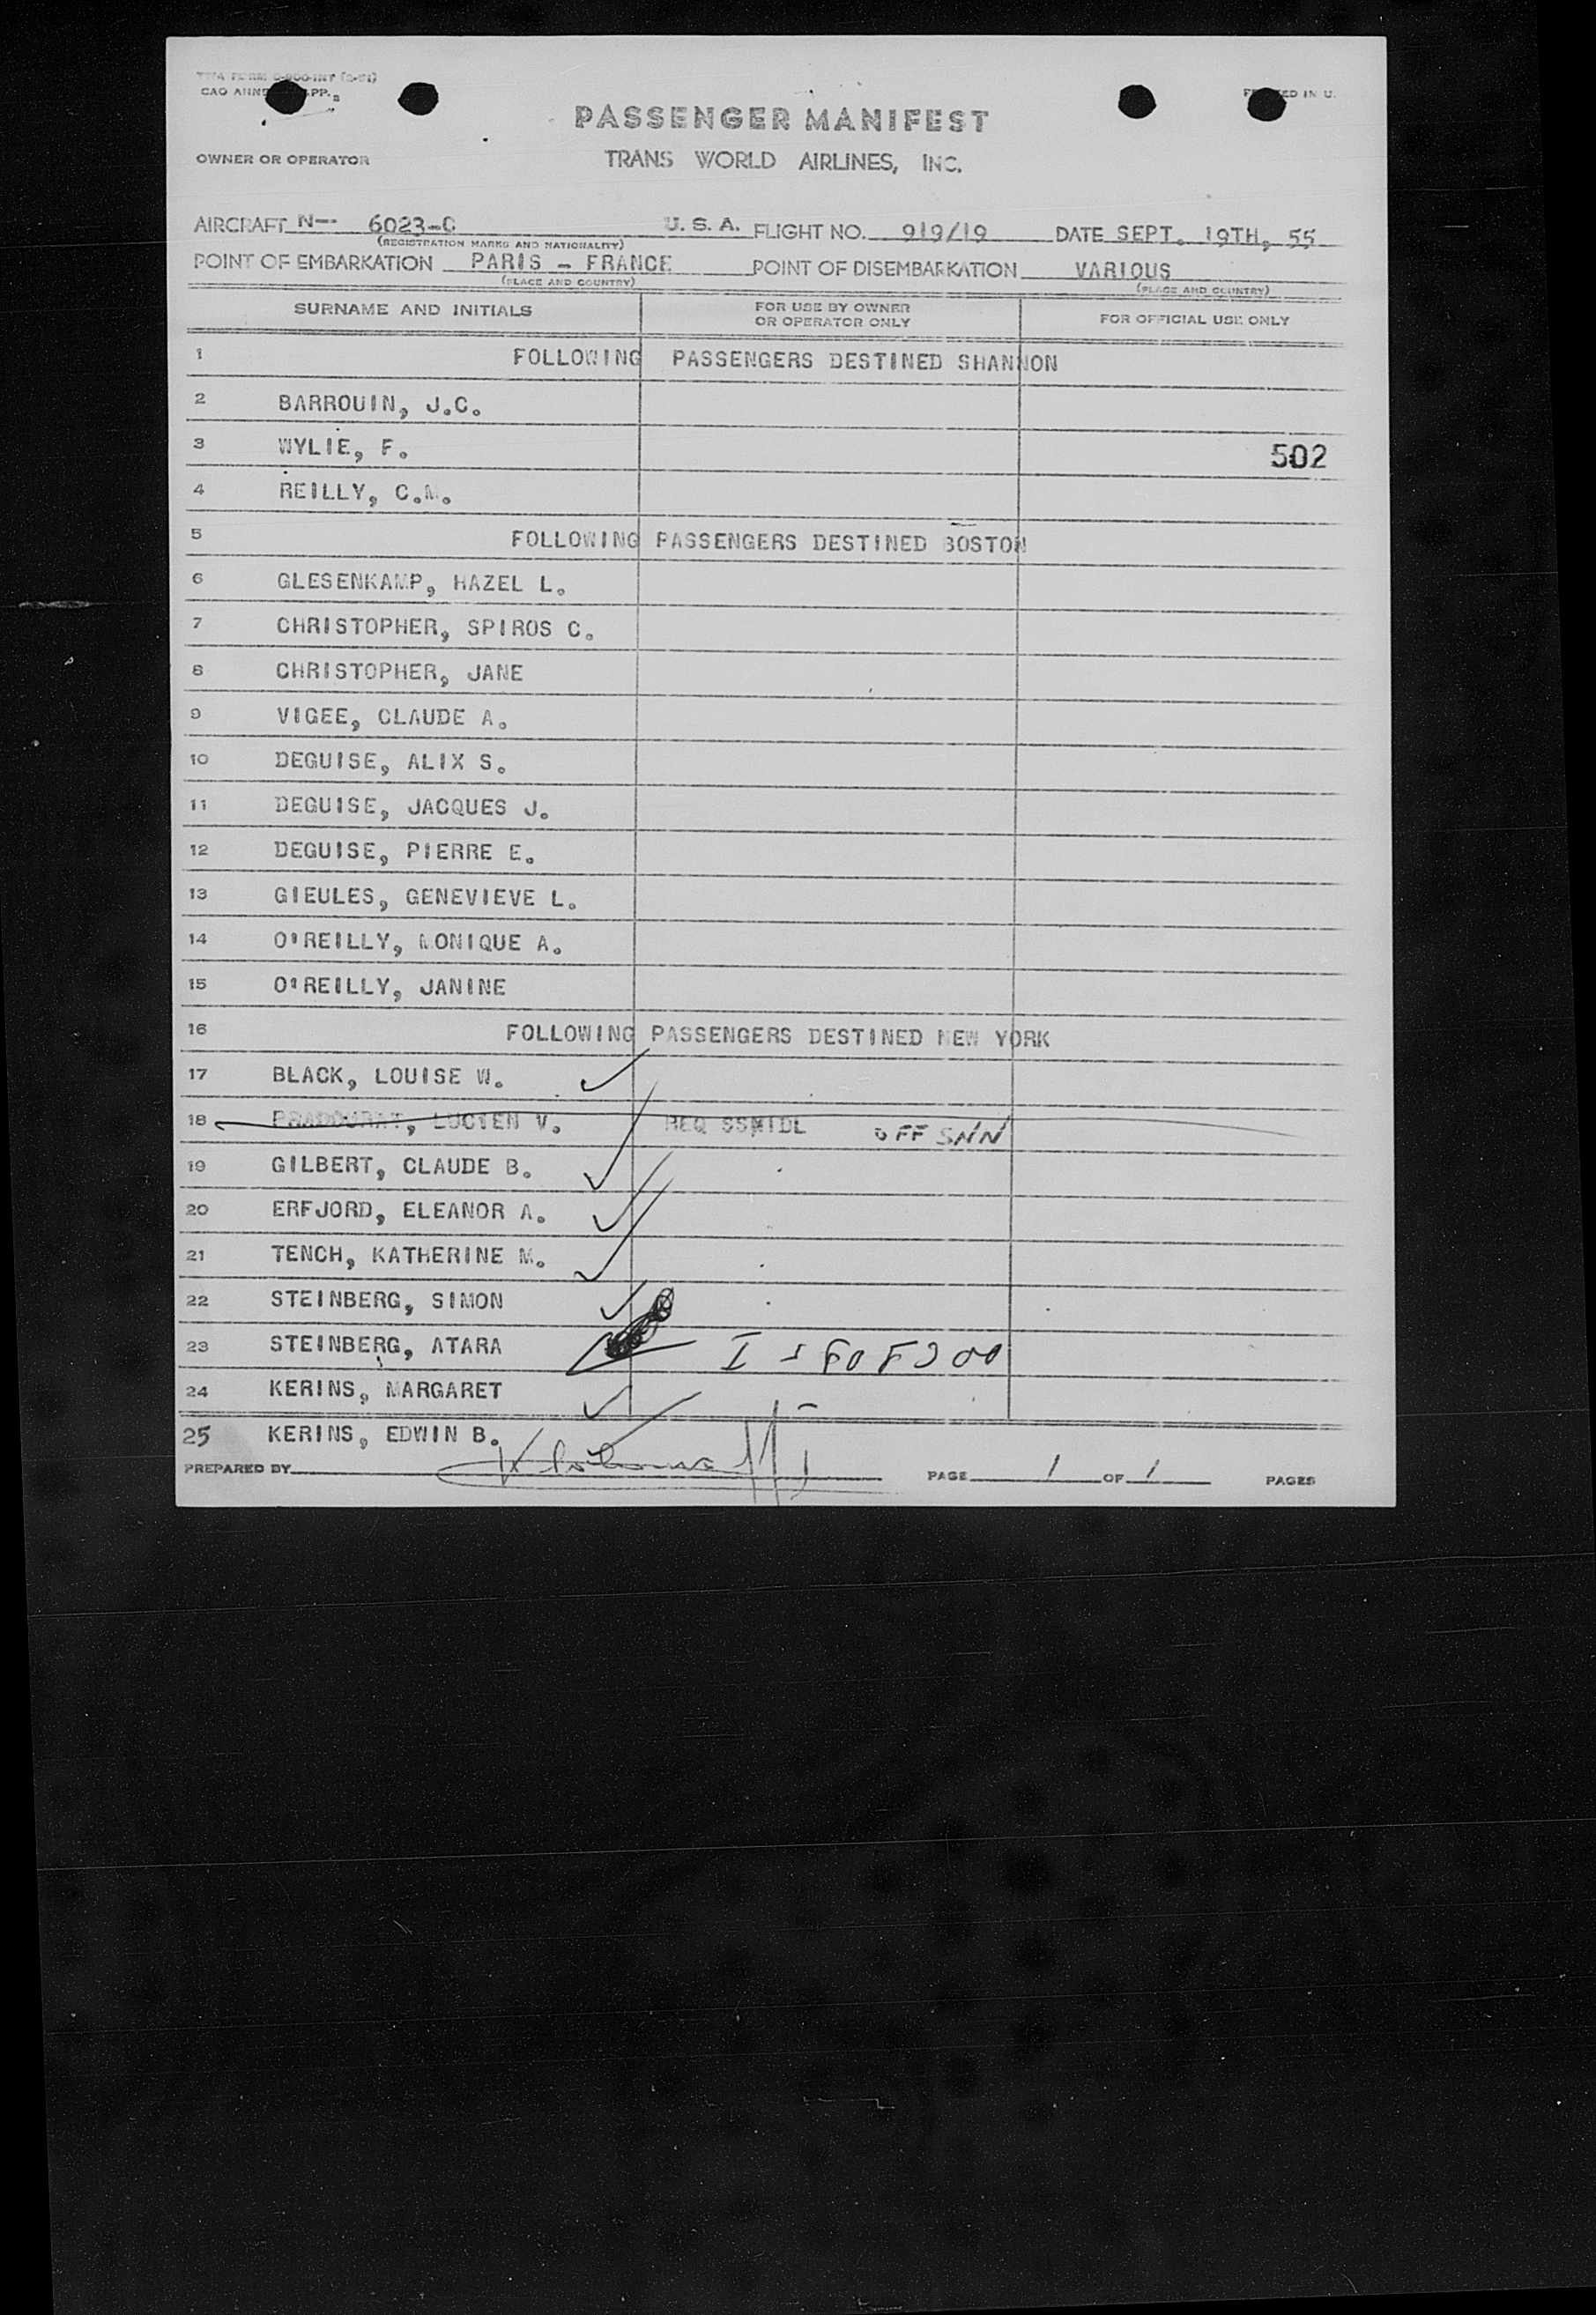 TWA FORM
CAO ANNE PP.
PASSENGER MANIFEST
OWNER OR OPERATOR TRANS WORLD AIRLINES, INC.
AIRCRAFT N-- 6023-C U. S. A. FLIGHT NO. 919/19 DATE SEPT. 19TH, 55
(REGISTRATION MARKS AND NATIONALITY)
POINT OF EMBARKATION PARIS - FRANCE POINT OF DISEMBARKATION VARIOUS
(PLACE AND COUNTRY) (PLACE AND COUNTRY)
SURNAME AND INITIALS FOR USE BY OWNER OR OPERATOR ONLY FOR OFFICIAL USE ONLY
1 FOLLOWING PASSENGERS DESTINED SHANNON
2 BARROUIN, J.C.
3 WYLIE, F. 502
4 REILLY, C.M.
5 FOLLOWING PASSENGERS DESTINED BOSTON
6 GLESENKAMP, HAZEL L.
7 CHRISTOPHER, SPIROS C.
8 CHRISTOPHER, JANE
9 VIGEE, CLAUDE A.
10 DEGUISE, ALIX S.
11 DEGUISE, JACQUES J.
12 DEGUISE, PIERRE E.
13 GIEULES, GENEVIEVE L.
14 O'REILLY, MONIQUE A.
15 O'REILLY, JANINE
16 FOLLOWING PASSENGERS DESTINED NEW YORK
17 BLACK, LOUISE W.
18 LUCIEN V. REQ OFF SNN
19 GILBERT, CLAUDE B.
20 ERFJORD, ELEANOR A.
21 TENCH, KATHERINE M.
22 STEINBERG, SIMON
23 STEINBERG, ATARA
24 KERINS, MARGARET
25 KERINS, EDWIN B.
PREPARED BY PAGE 1 OF 1 PAGES